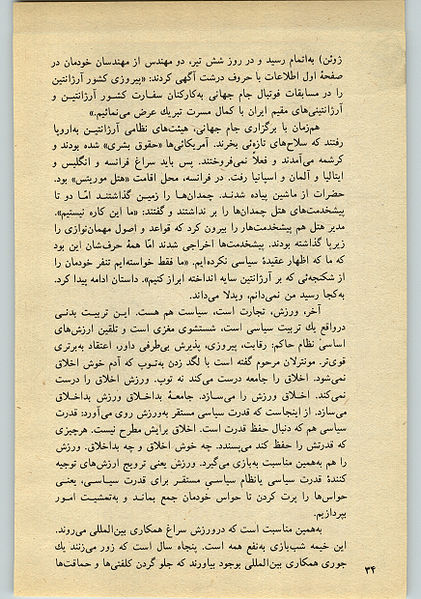 ژوئن) به‌اتمام رسید و در روز شش تیر، دو مهندس از مهندسان خودمان در
صفحهٔ اول اطلاعات با حروف درشت آگهی کردند: «پیروزی کشور آرژانتین
را در مسابقات فوتبال جام جهانی به‌کارکنان سفارت کشور آرژانتین و
آرژانتینی‌های مقیم ایران با کمال مسرت تبریك عرض می‌نمائیم.»
هم‌زمان با برگزاری جام جهانی، هیئت‌های نظامی آرژانتین به‌اروپا
رفتند که سلاح‌های تازه‌ئی بخرند. آمریکائی‌ها «حقوق بشری» شده بودند و
کرشمه می‌آمدند و فعلاً نمی‌فروختند. پس باید سراغ فرانسه و انگلیس و
ایتالیا و آلمان و اسپانیا رفت. در فرانسه، محل اقامت «هتل موریتس» بود.
حضرات از ماشین پیاده شدند. چمدان‌ها را زمین گذاشتند امّا دو تا
پیشخدمت‌های هتل چمدان‌ها را بر نداشتند و گفتند: «ما این کاره نیستیم».
مدیر هتل هم پیشخدمت‌هار را بیرون کرد که قواعد و اصول مهمان‌نوازی را
زیرپا گذاشته بودند. پیشخدمت‌ها اخراجی شدند امّا همهٔ حرف‌شان این بود
که ما که اظهار عقیدهٔ سیاسی نکرده‌ایم. «ما فقط خواسته‌ایم تنفر خودمان را
از شکنجه‌ئی که بر آرژانتین سایه انداخته ابراز کنیم». داستان ادامه پیدا کرد.
به‌کجا رسید من نمی‌دانم، ویدلا می‌داند.
آخر، ورزش، تجارت است، سیاست هم هست. این تربیت بدنی
درواقع یك تربیت سیاسی است، شستشوی مغزی است و تلقین ارزش‌های
اساسی نظام حاکم: رقابت، پیروزی، پذیرش بی‌طرفی داور، اعتقاد به‌برتری
قوی‌تر. مونترلان مرحوم گفته است با لگد زدن به‌توپ که آدم خوش اخلاق
نمی‌شود. اخلاق را جامعه درست می‌کند نه توپ. ورزش اخلاق را درست
نمی‌کند. اخلاق ورزش را می‌سازد. جامعهٔ بداخلاق ورزش بداخلاق
می‌سازد. از اینجاست که قدرت سیاسی مستقر به‌ورزش روی می‌آورد: قدرت
سیاسی هم که دنبال حفظ قدرت است. اخلاق برایش مطرح نیست. هرچیزی
که قدرتش را حفظ کند می‌پسندد. چه خوش اخلاق و چه بداخلاق. ورزش
را هم به‌همین مناسبت به‌بازی می‌گیرد. ورزش یعنی ترویج ارزش‌های توجیه
کنندهٔ قدرت سیاسی یانظام سیاسی مستقر برای قدرت سیاسی، یعنی
حواس‌ها را پرت کردن تا حواس خودمان جمع بماند و به‌تمشیت امور
بپردازیم.
به‌همین مناسبت است که درورزش سراغ همکاری بین‌المللی می‌روند.
این خیمه شب‌بازی به‌نفع همه است. پنجاه سال است که زور می‌زنند یك
جوری همکاری بین‌المللی بوجود بیاورند که جلو گردن کلفتی‌ها و حماقت‌ها
۳۴